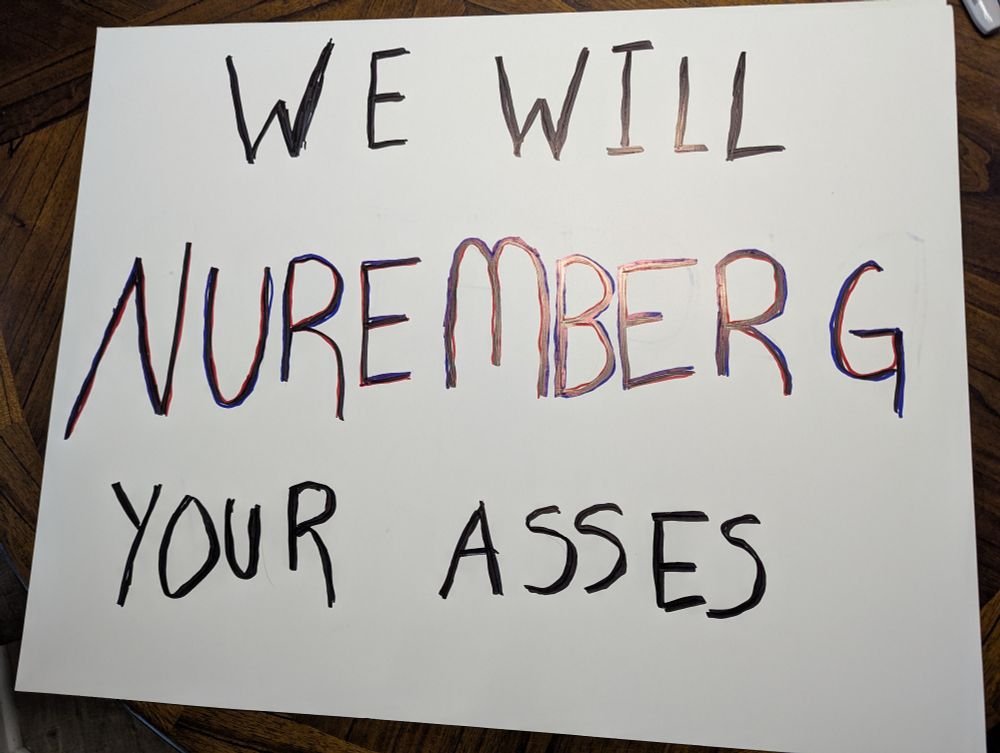 WE WILL
NUREMBERG
YOUR ASSES